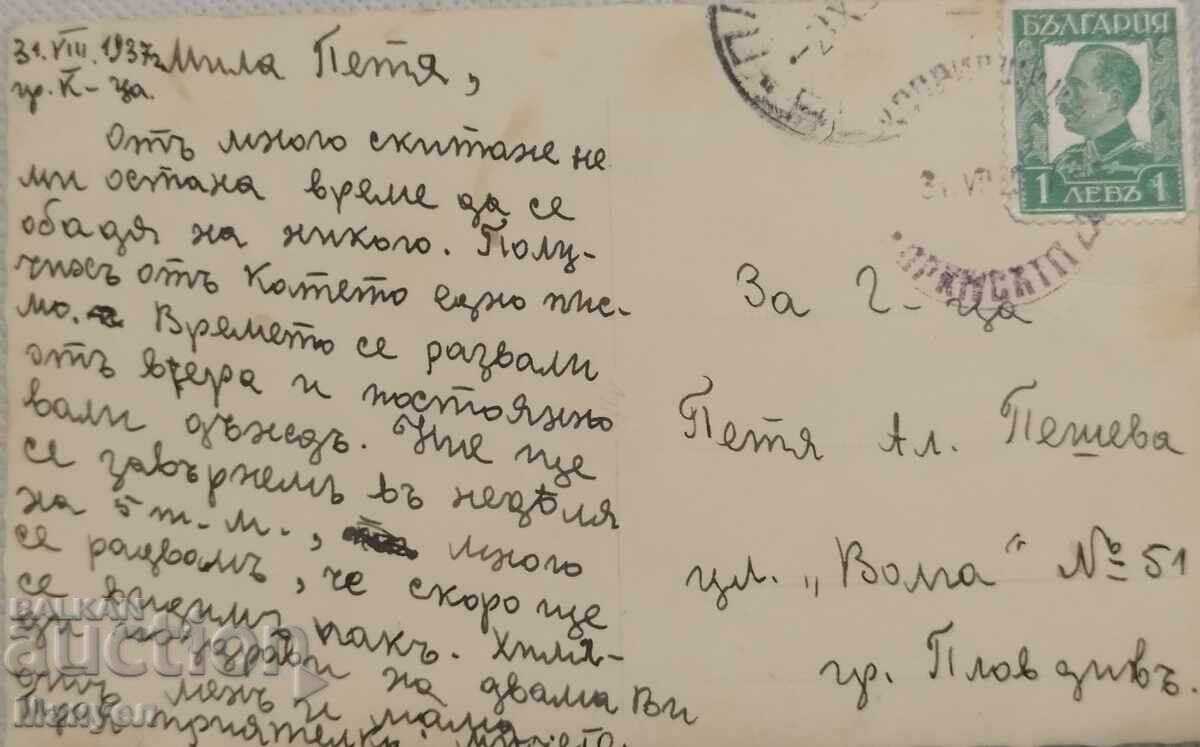 31.VIII.1937г.
гр. К-ца.
Мила Петя,
отъ много скитане не
ми остана време да се
обадя на никого. Полу-
чихъ отъ Катето едно пис-
мо. Времето се развали
отъ вчера и постоянно
вали дъждъ. Ние ще
се завърнемъ въ неделя
на 5 т.м., много
се радвамъ, че скоро ще
се видимъ пакъ. Хиля-
ди поздрави на двама Ви
отъ менъ и мама
приятелки
БЪЛГАРИЯ
1 ЛЕВЪ 1
За Г-ца
Петя Ал. Пешева
ул. „Волга“ № 51
гр. Пловдивъ.
BALKAN
auction